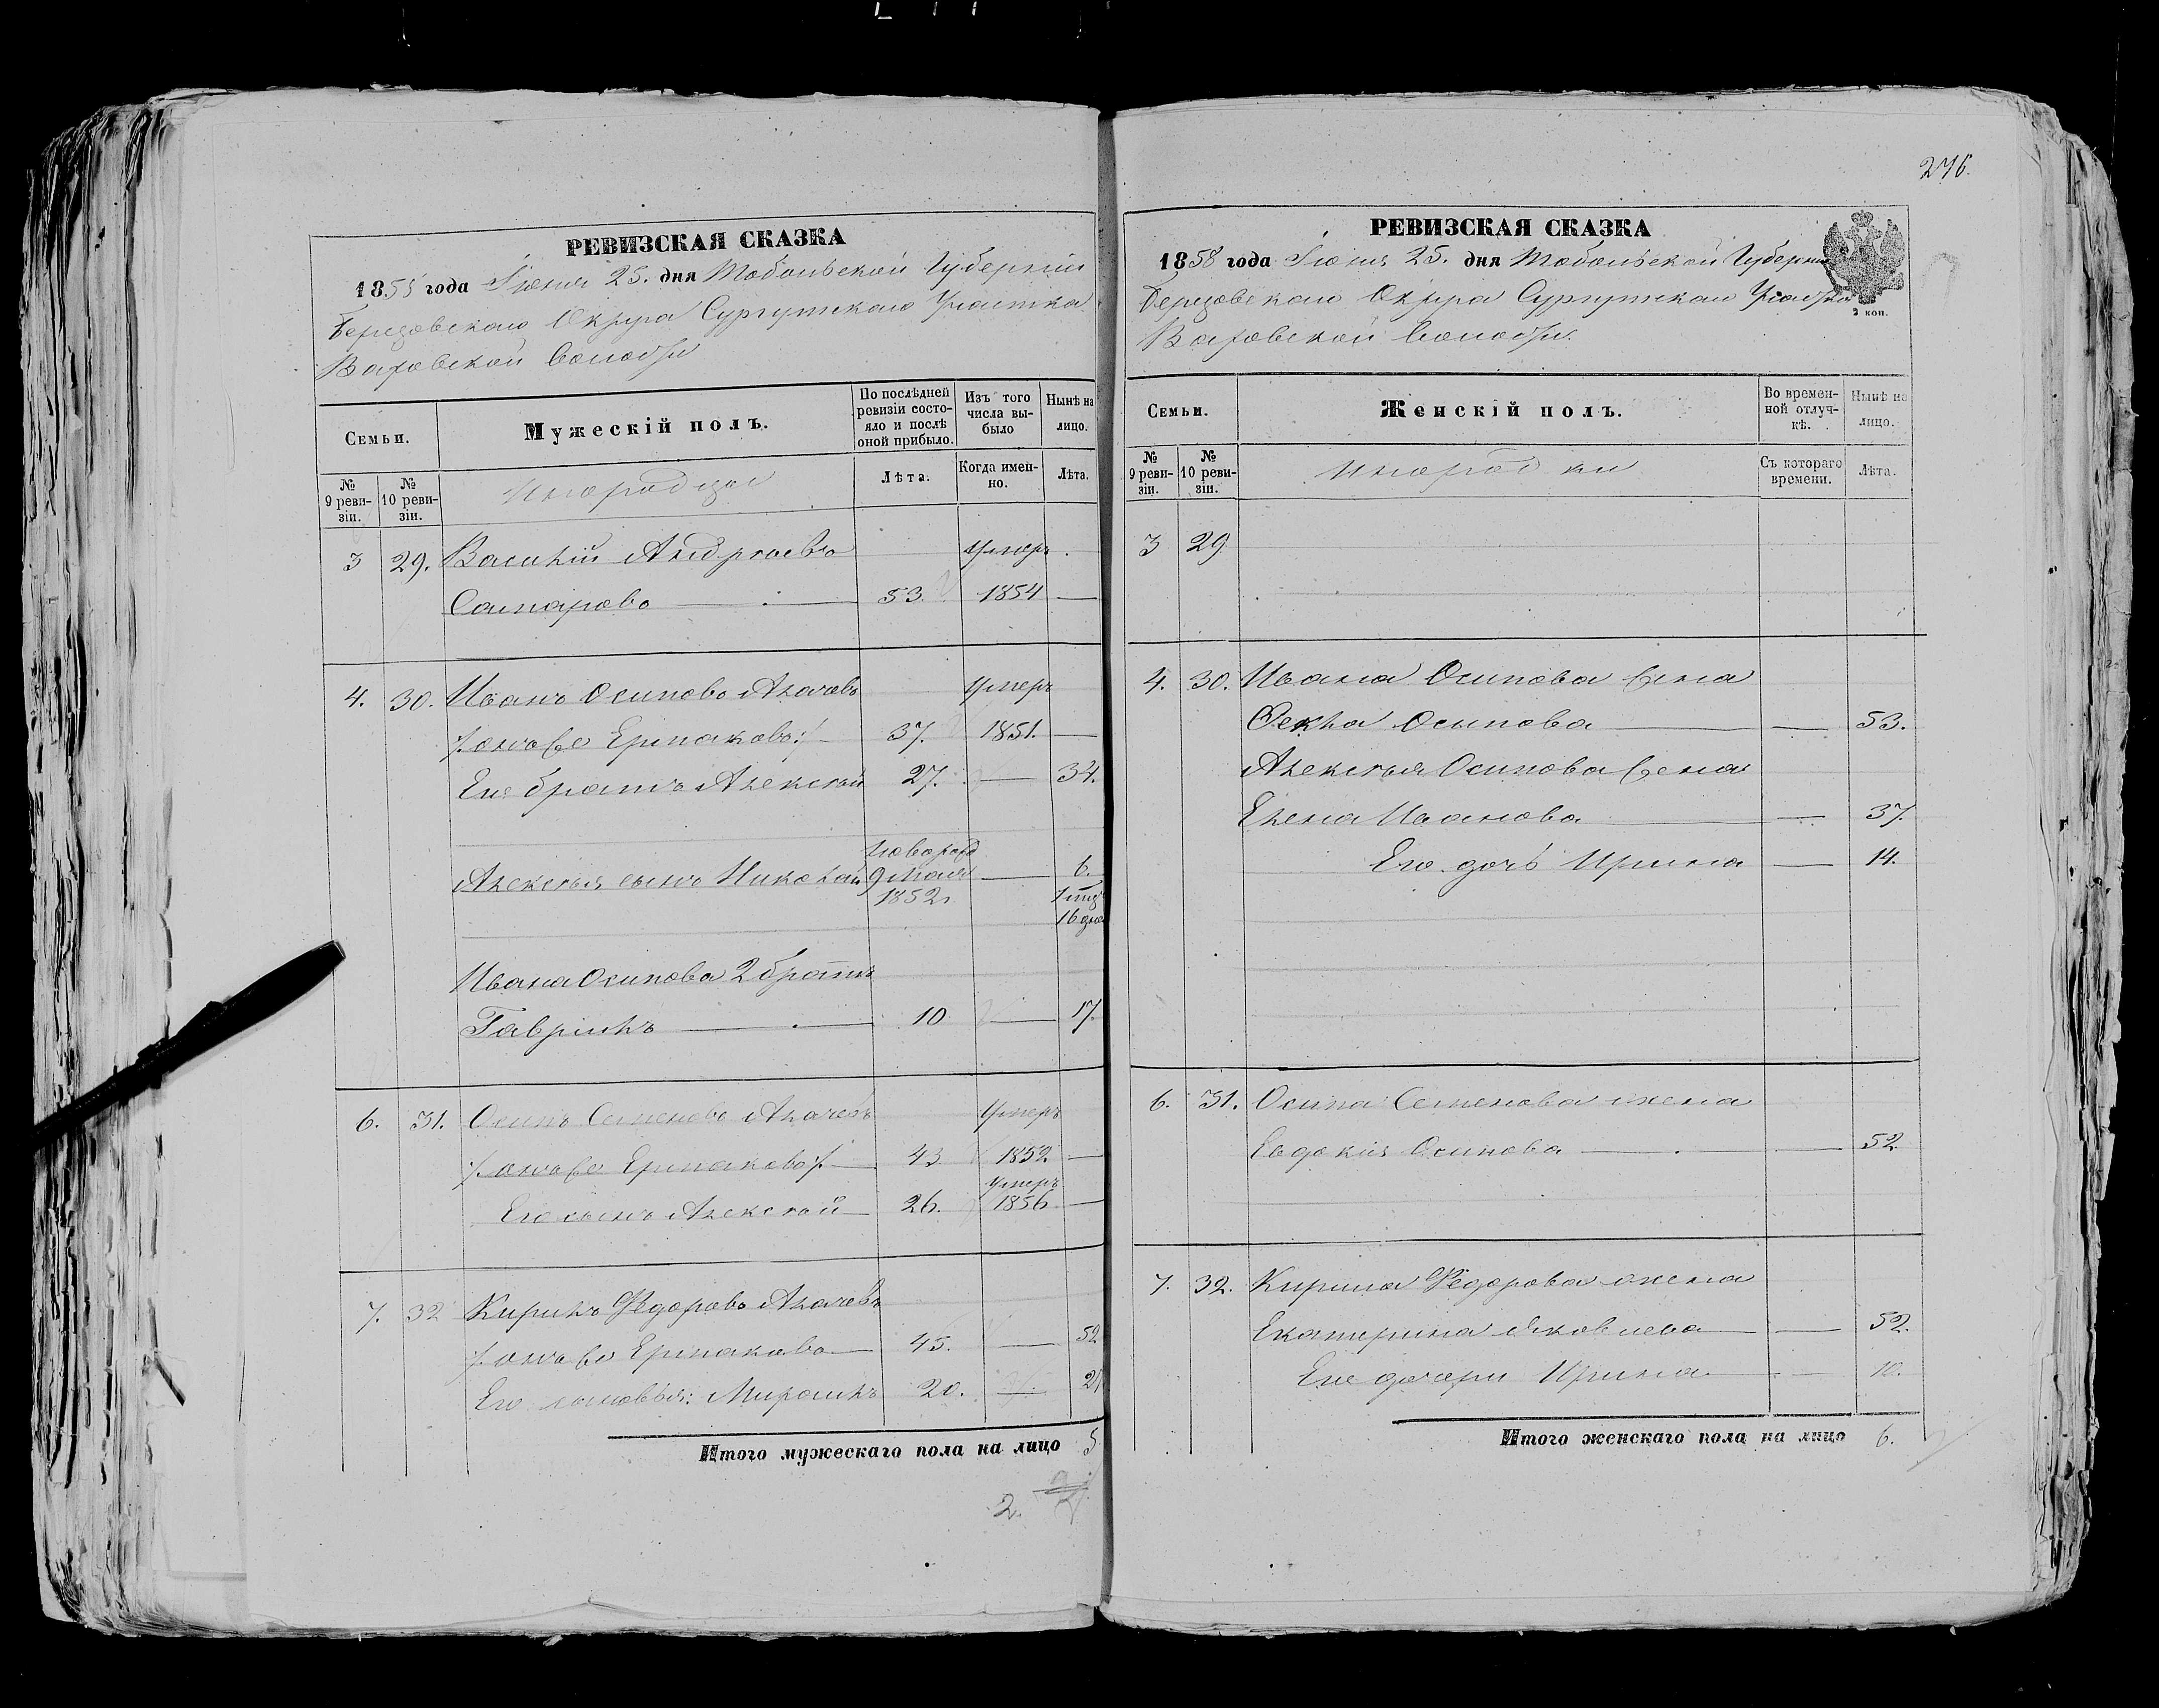 276.
РЕВИЗСКАЯ СКАЗКА
1858 года Июня 25. дня Тобольской Губернии
Березовскаго Округа Сургутскаго Участка
Ваховской волости
Семьи.
Мужескій полъ.
По послѣдней ревизіи состо-
яло и послѣ
оной прибыло.
Изъ того
числа вы-
было
Нынѣ на
лицо.
№
9 реви-
зіи.
№
10 реви-
зіи.
Инородцы
Лѣта.
Когда имен-
но.
Лѣта.
3 29. Василій Андреевъ умеръ
53. 1854 —
4. 30. Иванъ Осиповъ умеръ
онъ же Ермаковъ 37. 1851. —
Его братъ Алексѣй 27. — 34.
новорожд
Алексѣя сынъ Николай 9 мая — 6.
1852 1 мѣц
16 дне
Ивана Осипова 2 братъ
Гаврилъ — 10 — 17.
6. 31. Осипъ Семеновъ умеръ
онъ же Ермаковъ 43 1852 —
умеръ
Его сынъ Алексѣй 26. 1856 —
7. 32 Кирилъ Федоровъ
онъ же Ермаковъ 45. — 52
Его сыновья: 20. —
Итого мужескаго пола на лицо 5
2.
РЕВИЗСКАЯ СКАЗКА
1858 года Июня 25. дня Тобольской Губерніи
Березовскаго Округа Сургутскаго Участка
2 коп.
Ваховской волости.
Семьи.
Женскій полъ.
Во времен-
ной отлуч-
кѣ.
Нынѣ на
лицо.
№
9 реви-
зіи.
№
10 реви-
зіи.
Инородки
Съ котораго
времени.
Лѣта.
3 29
4. 30. Ивана Осипова жена
Фекла Осипова — — 53.
Алексѣя Осипова жена
Елена Иванова — — 37.
Его дочь Ирина — 14.
6. 31. Осипа Семенова жена
Евдокія Осипова — — 52
7. 32. Кирила Федорова жена
Екатерина Яковлева — — 52.
Его дочери Ирина — 10.
Итого женскаго пола на лицо 6.